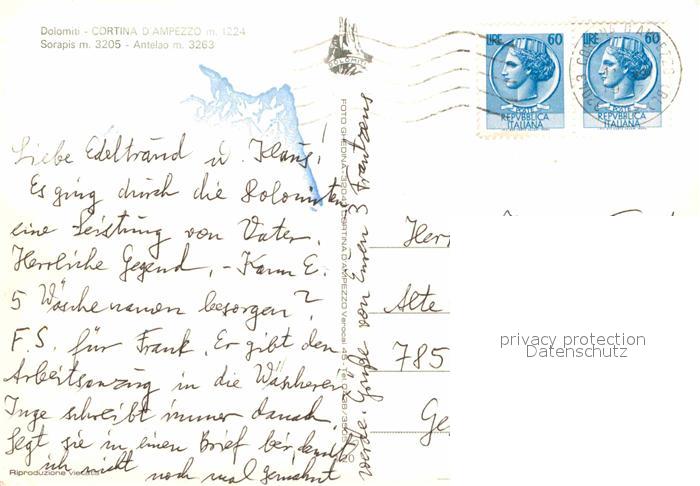 Dolomiti - CORTINA D'AMPEZZO m. 1224
Sorapis m. 3205 - Antelao m. 3263
DOLOMITI
LIRE 60
POSTE
REPVBBLICA
ITALIANA
LIRE 60
POSTE
REPVBBLICA
ITALIANA
Liebe Edeltraud u. Klaus!
Es ging durch die Dolomiten
eine Leistung von Vater.
Herrliche Gegend, - Kann E.
5 Wäschenamen besorgen?
F.S. für Frank. Er gibt den
Arbeitsanzug in die Wäscherei
Inge schreibt immer danach.
Legt sie in einen Brief bei damit
ich nicht noch mal gemahnt
werde. Grüße von Euren 3 Frantzens
FOTO GHEDINA - 32043 CORTINA D'AMPEZZO
Riproduzione vietata
Herr
Alte
785
Ge
privacy protection
Datenschutz